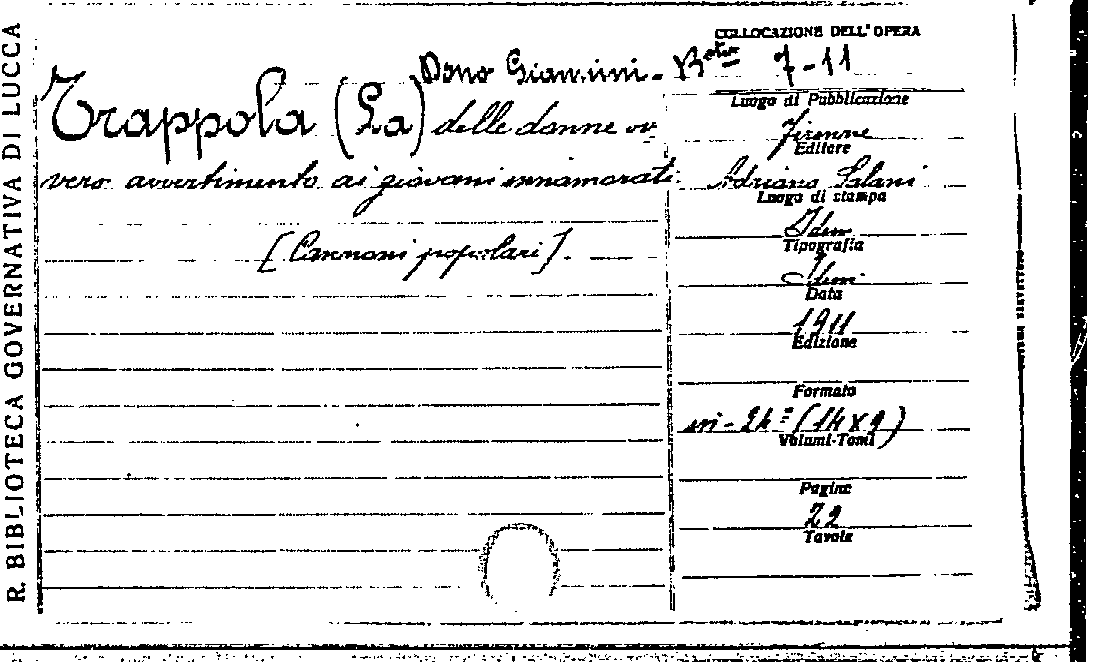 R. BIBLIOTECA GOVERNATIVA DI LUCCA
COLLOCAZIONE DELL'OPERA
Dono Giannini - Bta 7-11
Trappola (La) delle donne ov
vero avvertimento ai giovani innamorati.
[Canzoni popolari].
Luogo di Pubblicazione
Firenze
Editore
Adriano Salani
Luogo di stampa
Idem
Tipografia
Idem
Data
1911
Edizione
Formato
in-24º (14x9)
Volumi-Tomi
Pagine
22
Tavole